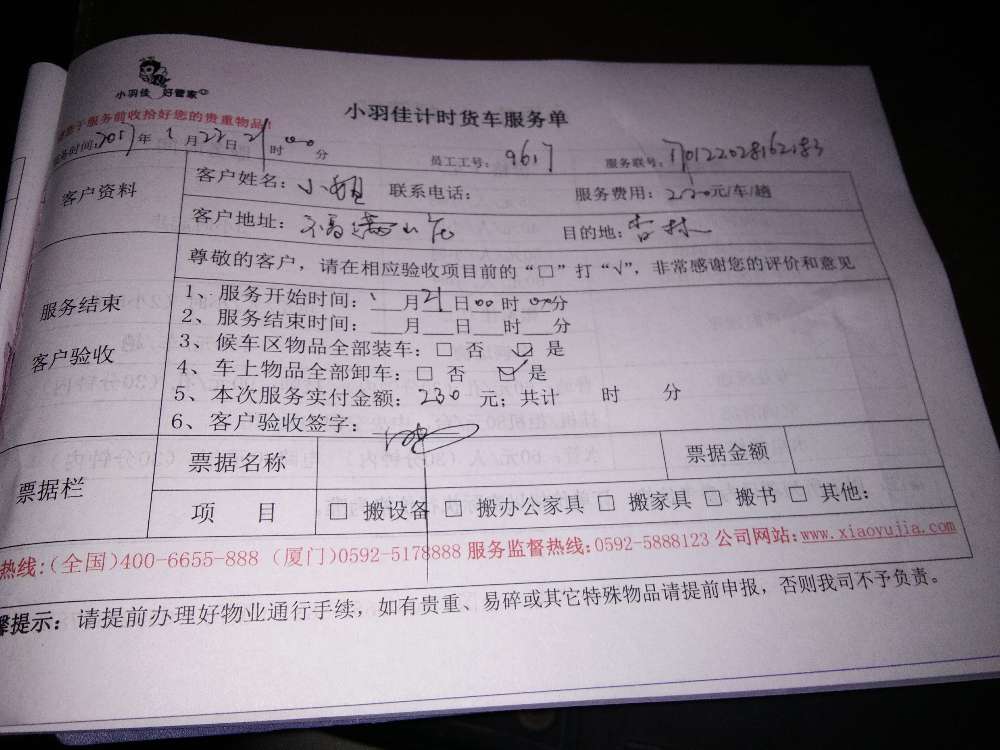 小羽佳 好管家
小羽佳计时货车服务单
于服务前收拾好您的贵重物品!
务时间:2017年1月22日21时00分 员工工号:9617 服务联号:
客户资料 客户姓名:小姐 联系电话: 服务费用:230元/车/趟
客户地址:福满山庄 目的地:杏林
服务结束
客户验收
尊敬的客户,请在相应验收项目前的“□”打“√”,非常感谢您的评价和意见
1、服务开始时间: 月21日00时00分
2、服务结束时间:___月___日___时___分
3、候车区物品全部装车:□ 否 ☑ 是
4、车上物品全部卸车:□ 否 ☑ 是
5、本次服务实付金额:230 元;共计 时 分
6、客户验收签字:
票据栏 票据名称 票据金额
项 目 □ 搬设备 □ 搬办公家具 □ 搬家具 □ 搬书 □ 其他:
热线:(全国)400-6655-888 (厦门)0592-5178888 服务监督热线:0592-5888123 公司网站:www.xiaoyujia.com
馨提示:请提前办理好物业通行手续,如有贵重、易碎或其它特殊物品请提前申报,否则我司不予负责。